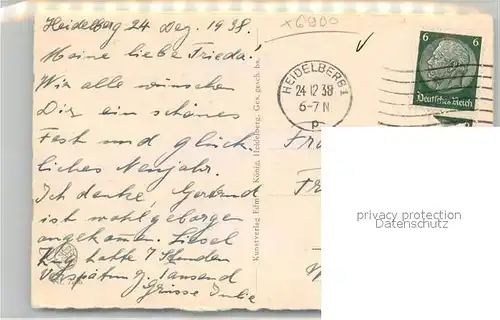 Heidelberg 24 Dez. 1938.
Meine liebe Frieda!
Wir alle wünschen
Dir ein schönes
Fest und glück-
liches Neujahr.
Ich denke, Gertrud
ist wohlgeborgen
angekommen. Liesel
Zug hatte 7 Stunden
Verspätung. Tausend
Grüsse
x6900
HEIDELBERG 1
24 12 38
6-7 N
6 6
Deutsches Reich
Kunstverlag Edm. König, Heidelberg. Ges. gesch.
privacy protection
Datenschutz